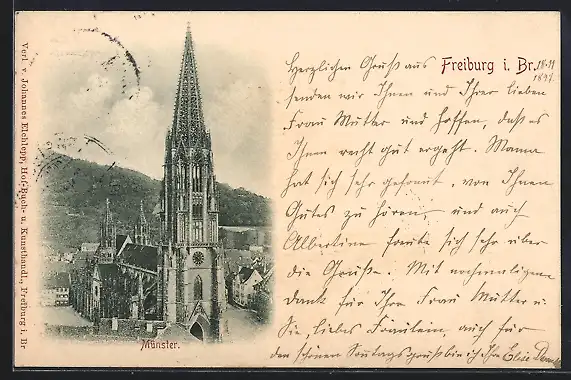 Verl. v. Johannes Elchlepp, Hof-Buch- u. Kunsthandl., Freiburg i. Br
Münster.
Herzlichen Gruß aus Freiburg i. Br.
1897.
senden wir Ihnen und Ihrer lieben
Frau Mutter und hoffen, daß es
Ihnen recht gut ergeht. Mama
hat sich sehr gefreut, von Ihnen
Gutes zu hören, und auch
Albertine freute sich sehr über
die Grüße. Mit nochmaligem
Dank für Ihre Frau Mutter u.
Sie, liebes Fräulein, auch für
den schönen Sonntagsgruß bin ich Ihre Elise